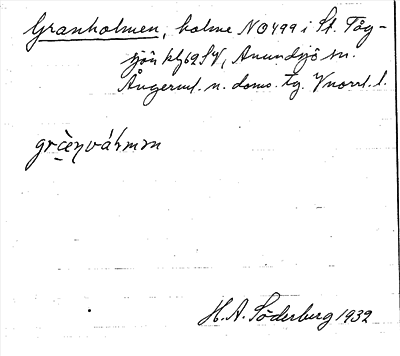 Granholmen, holme NO499 i St. Tåg-
sjön kbl 62 SV, Anundsjö sn.
Ångerml. n. doms. tg. Vnorrl. l.
grèn̥váhmm
H. A. Söderberg 1932